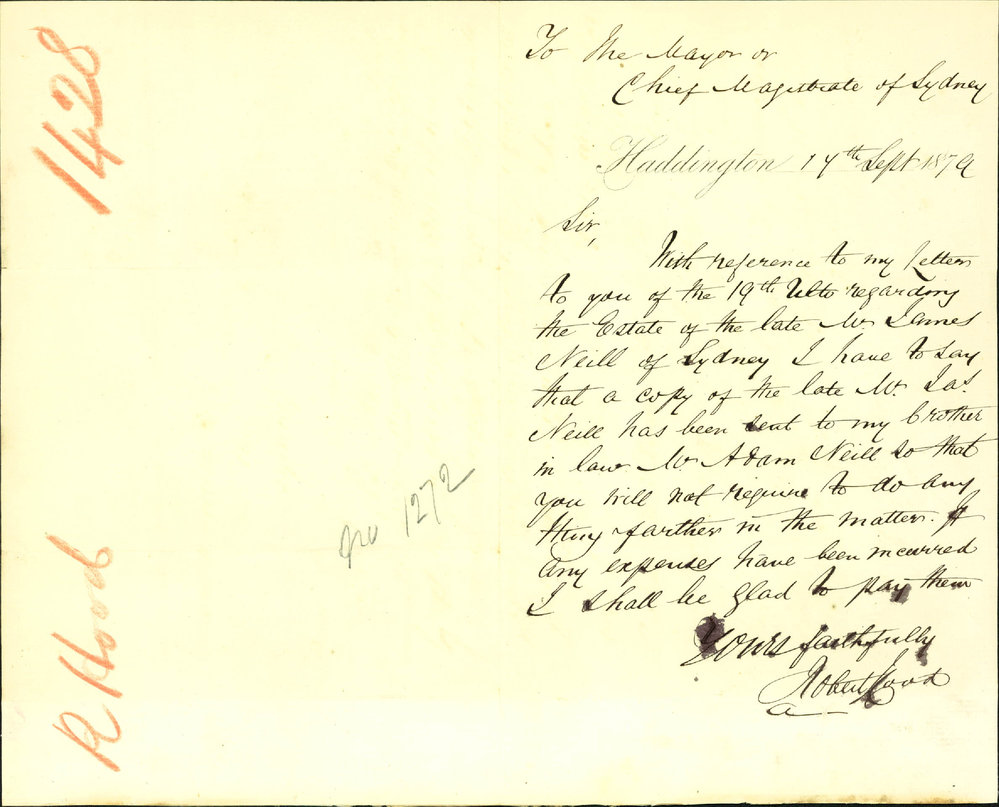 1428
R Hood
To The Mayor or
Chief Magistrate of Sydney
Haddington 17th Sept 1879
Sir,
With reference to my Letter
to you of the 19th Ulto regarding
the Estate of the late Mr James
Neill of Sydney I have to say
that a copy of the late Mr. Jas.
Neill has been sent to my brother
in law Mr Adam Neill so that
you will not require to do any
thing farther in the matter. If
any expenses have been incurred
I shall be glad to pay them
Yours faithfully
Robert Hood
1272